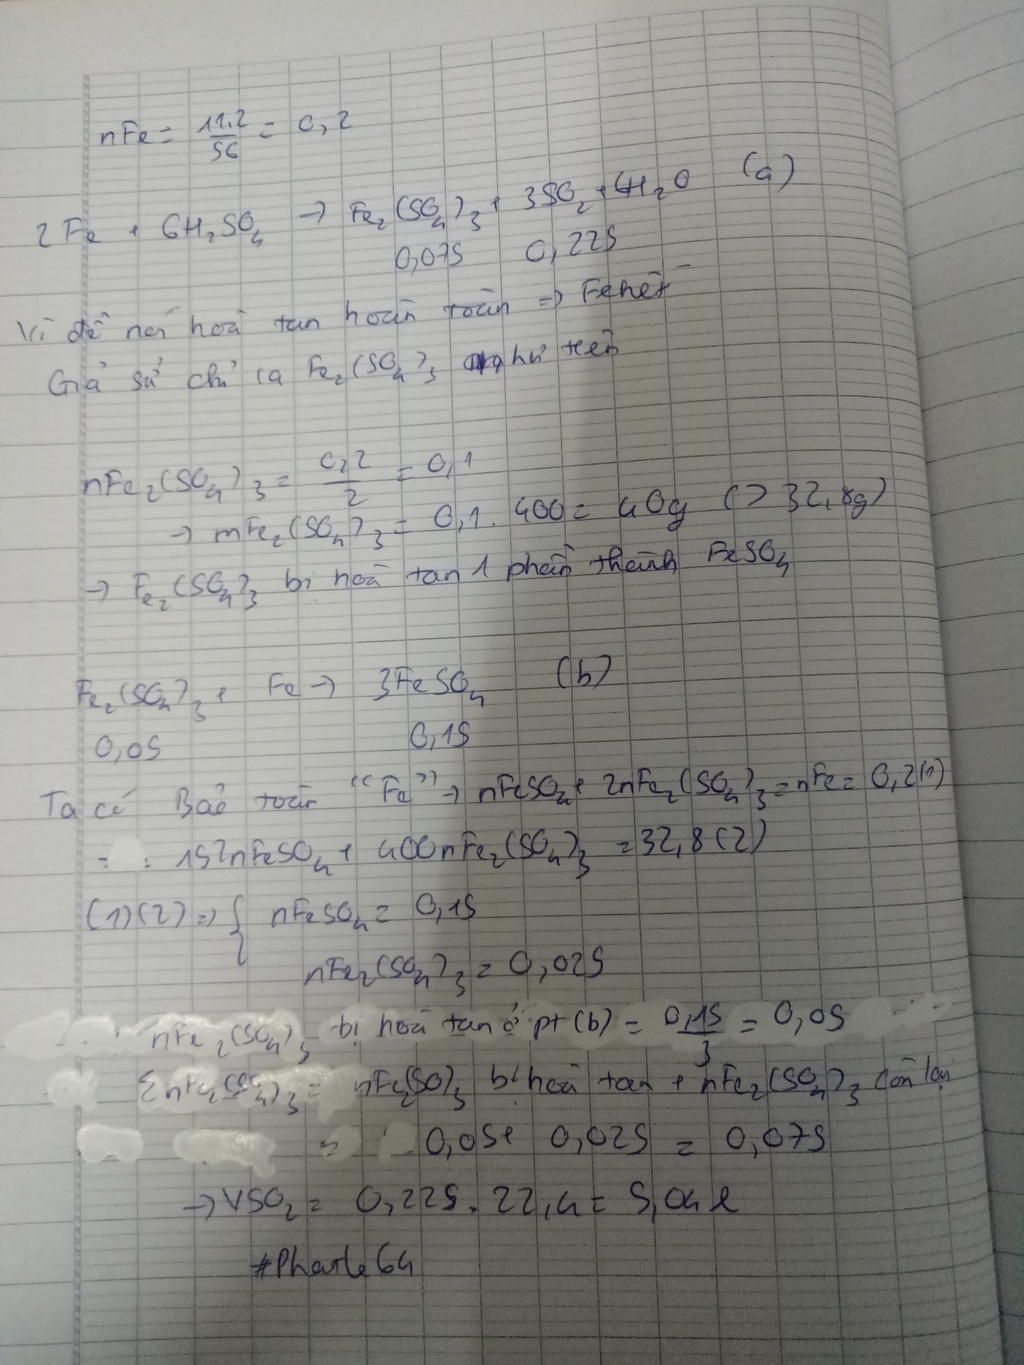 nFe = 11.2/56 = 0,2
2Fe + 6H₂SO₄ → Fe₂(SO₄)₃ + 3SO₂ + 6H₂O (a)
0,075 0,225
Vì đề nói hoà tan hoàn toàn => Fe hết
Giả sử chỉ ra Fe₂(SO₄)₃ như trên
nFe₂(SO₄)₃ = 0,2/2 = 0,1
→ mFe₂(SO₄)₃ = 0,1.400 = 40g (> 32,8g)
→ Fe₂(SO₄)₃ bị hoà tan 1 phần thành FeSO₄
Fe₂(SO₄)₃ + Fe → 3FeSO₄ (b)
0,05 0,15
Ta có Bảo toàn "Fe" → nFeSO₄ + 2nFe₂(SO₄)₃ = nFe = 0,2 (1)
152nFeSO₄ + 400nFe₂(SO₄)₃ = 32,8 (2)
(1)(2) => { nFeSO₄ = 0,15
nFe₂(SO₄)₃ = 0,025
nFe₂(SO₄)₃ bị hoà tan ở pt (b) = 0,15/3 = 0,05
ΣnFe₂(SO₄)₃ = nFe₂(SO)₃ bị hoà tan + nFe₂(SO₄)₃ còn lại
= 0,05 + 0,025 = 0,075
→ VSO₂ = 0,225.22,4 = 5,04 l